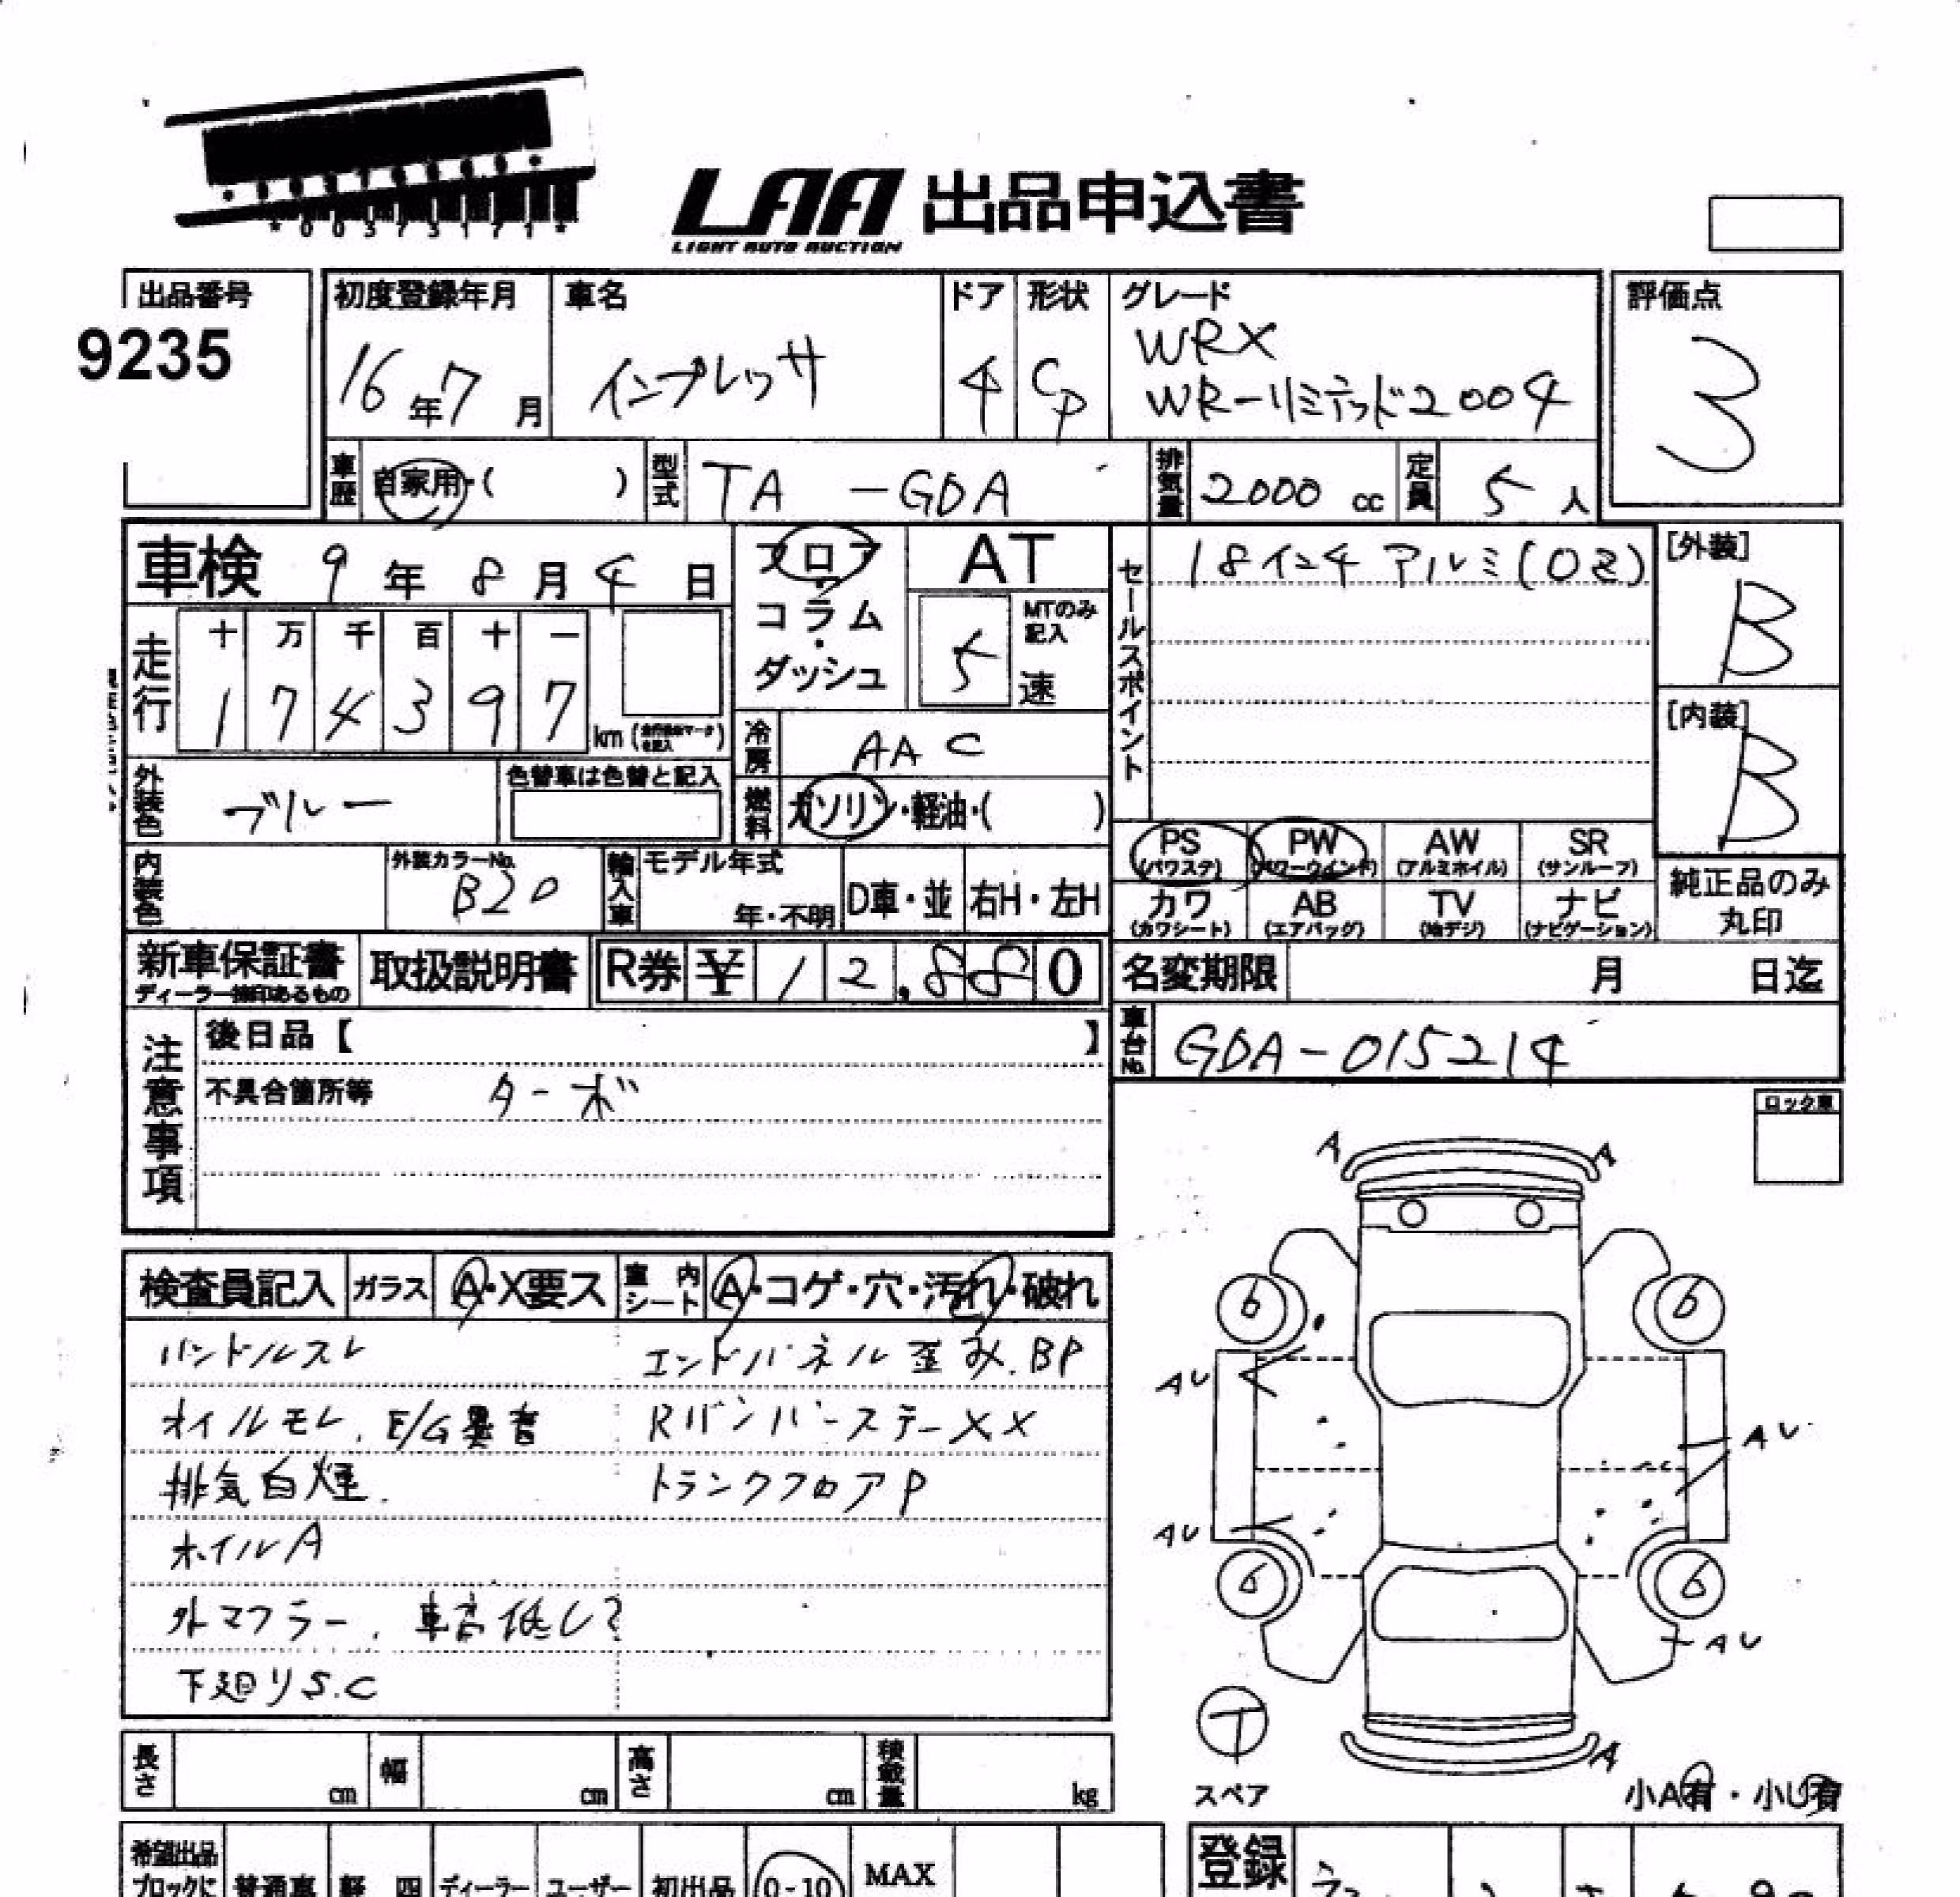 *00373171*
LAA 出品申込書
LIGHT AUTO AUCTION
出品番号 初度登録年月 車名 ドア 形状 グレード 評価点
9235 16年7月 インプレッサ 4 CP WRX 3
WR-リミテッド2004
車歴 自家用・( ) 型式 TA -GDA 排気量 2000 cc 定員 5 人
車検 9 年 8 月 4 日 フロア AT セールスポイント 18インチ アルミ(OZ) [外装] B
コラム・ダッシュ 5 速 MTのみ記入
走行 十 万 千 百 十 一
1 7 4 3 9 7 km
冷房 AAC [内装] B
外装色 ブルー 色替車は色替と記入 燃料 ガソリン・軽油・( )
PS (パワステ) PW (パワーウインド) AW (アルミホイル) SR (サンルーフ)
内装色 外装カラーNo. B20 輸入車 モデル年式 年・不明 D車・並 右H・左H
カワ (カワシート) AB (エアバッグ) TV (地デジ) ナビ (ナビゲーション) 純正品のみ丸印
新車保証書 取扱説明書 R券 ¥ 12,880 名変期限 月 日迄
ディーラー捺印あるもの
注意事項 後日品【 】 車台No. GDA-015214
不具合箇所等 ターボ
ロック車
A A
検査員記入 ガラス A・X要ス 室内シート A・コゲ・穴・汚れ・破れ
ハンドルスレ エンドパネル歪み.BP
オイルモレ、E/G異音 RバンパーステーXX
排気白煙. トランクフロアP
ホイルA
外マフラー、車高低し?
下廻りS.C
6 6
AU
AU
AU
6 6
AU
T
スペア
A
小A有・小U有
長さ cm 幅 cm 高さ cm 積載量 kg
希望出品 登録
ブロックに 普通車 軽 四 ディーラー ユーザー 初出品 0-10 MAX